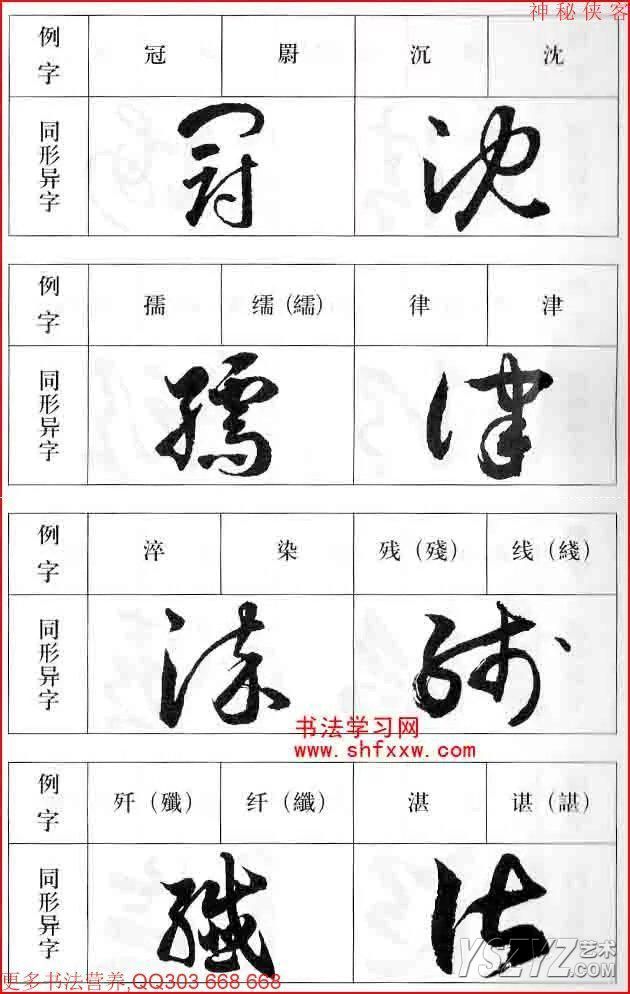 神秘侠客
例字 冠 罻 沉 沈
同形异字
例字 孺 𦈡(繻) 律 津
同形异字
例字 淬 染 残(殘) 线(綫)
同形异字
书法学习网
www.shfxxw.com
例字 歼(殲) 纤(纖) 湛 谌(諶)
同形异字
YSZYZ艺术
更多书法营养,QQ303 668 668